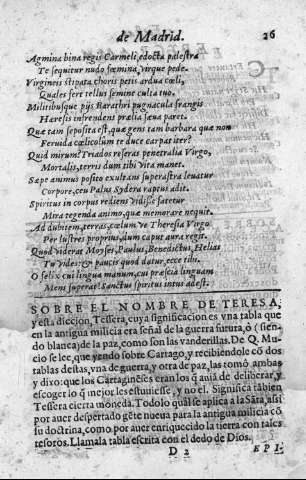 de Madrid. 26
Agmina bina regis Carmeli, edocta palestra
Te sequitur nudo fœmina, virque pede.
Virgineis stipata choris petis ardua cœli,
Quales fert tellus semine culta tuo.
Militibusque pijs Barathri pugnacula frangis
Hæresis infrendens prælia sæua paret.
Quæ tam seposita est, quæ gens tam barbara que non
Feruida cœlicolum te duce carpat iter?
Quid mirum? Triados reseras penetralia Virgo,
Mortalis, terris dum tibi Vita manet.
Sæpe animus posito exultans superastra leuatur
Corpore, ceu Palus Sydera raptus adit.
Spiritus in corpus rediens vidisse fatetur
Mira tegenda animo, quæ memorare nequit.
Ad dubitem, terras, cœlum Ve Theresia Virgo
Per lustres proprius, dum caput aura regit.
Quod viderat Moyses, Paulus, Benedictus, Helias
Tu vides: & paucis quod datur, ecce tibi.
O felix cui lingua manum, cui præscia linguam
Mens superat! Sanctus spiritus intus adest.
SOBRE EL NOMBRE DE TERESA,
y esta diccion, Tessera cuya significacion es vna tabla que
en la antigua milicia era señal de la guerra futura, ò (sien
do blanca) de la paz, como son las vanderillas. De Q. Mu
cio se lee, que yendo sobre Cartago, y recibiendole cō dos
tablas destas, vna de guerra, y otra de paz, las tomò ambas
y dixo: que los Cartagineses eran los q̄ auiā de deliberar, y
escoger lo q̄ mejor les estuuiesse, y no el. Significa tābien
Tessera cierta moneda. Todo lo quāl se aplica a la Sāta, assi
por auer despertado gēte nueua para la antigua milicia cō
su doctrina, como por auer enriquecido la tierra con tales
tesoros. Llamala tabla escrita con el dedo de Dios.
D 2 EPI.